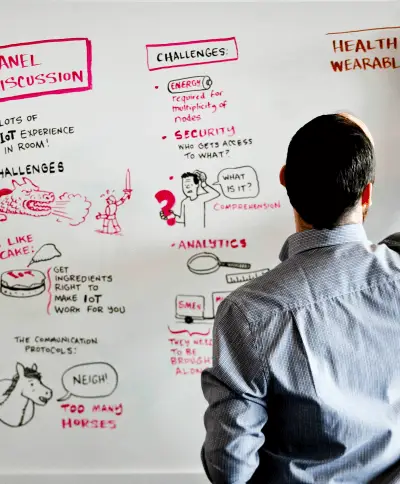 ANEL
ISCUSSION
LOTS OF
IoT EXPERIENCE
IN ROOM!
HALLENGES
LIKE
CAKE:
GET
INGREDIENTS
RIGHT TO
MAKE IoT
WORK FOR YOU
THE COMMUNICATION
PROTOCOLS:
NEIGH!
TOO MANY
HORSES
CHALLENGES:
• ENERGY
required for
multiplicity of
nodes
• SECURITY
WHO GETS ACCESS
TO WHAT?
?
WHAT
IS IT?
COMPREHENSION
• ANALYTICS
SMEs
THEY NEE
TO BE
BROUGH
ALON
HEALTH
WEARABL